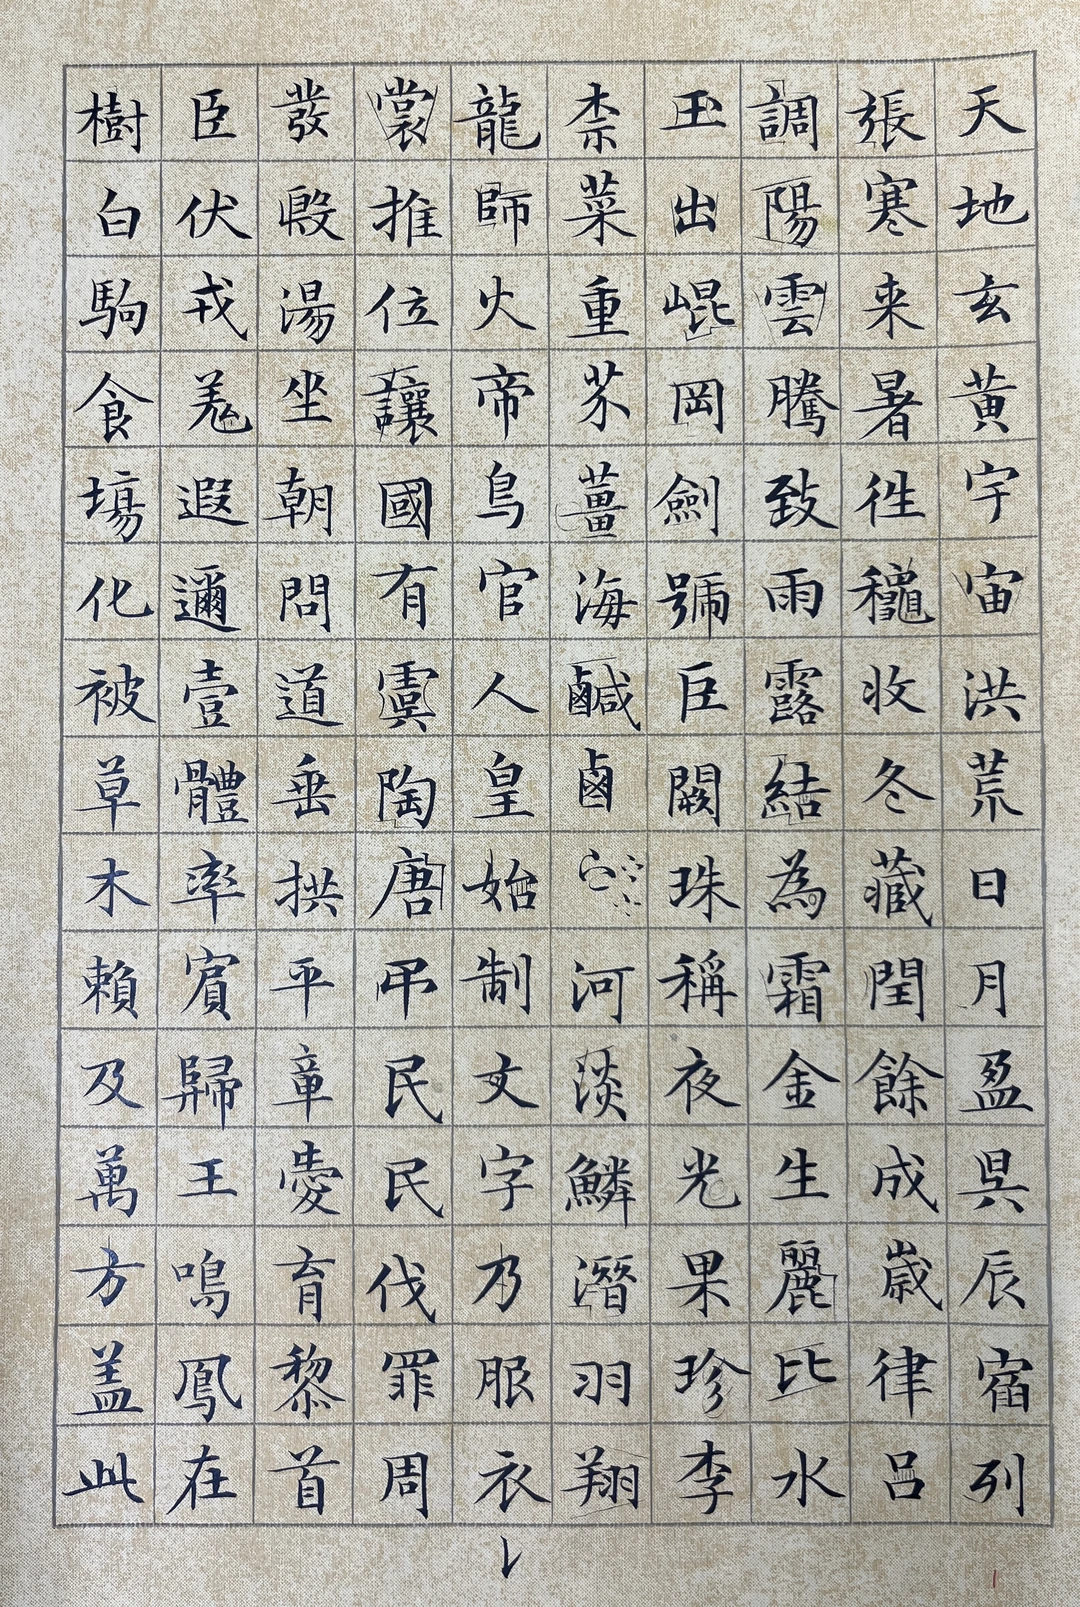 天地玄黃宇宙洪荒日月盈昃辰宿列
張寒来暑徃穐收冬藏閏餘成歲律吕
調陽雲騰致雨露結為霜金生麗比水
玉出崐岡劍號巨闕珠稱夜光果珍李
柰菜重芥薑海鹹鹵河淡鱗潛羽翔
龍師火帝鳥官人皇始制文字乃服衣
裳推位讓國有虞陶唐弔民民伐罪周
發殷湯坐朝問道垂拱平章愛育黎首
臣伏戎羌遐邇壹體率賓歸王鳴鳳在
樹白駒食場化被草木賴及萬方盖此